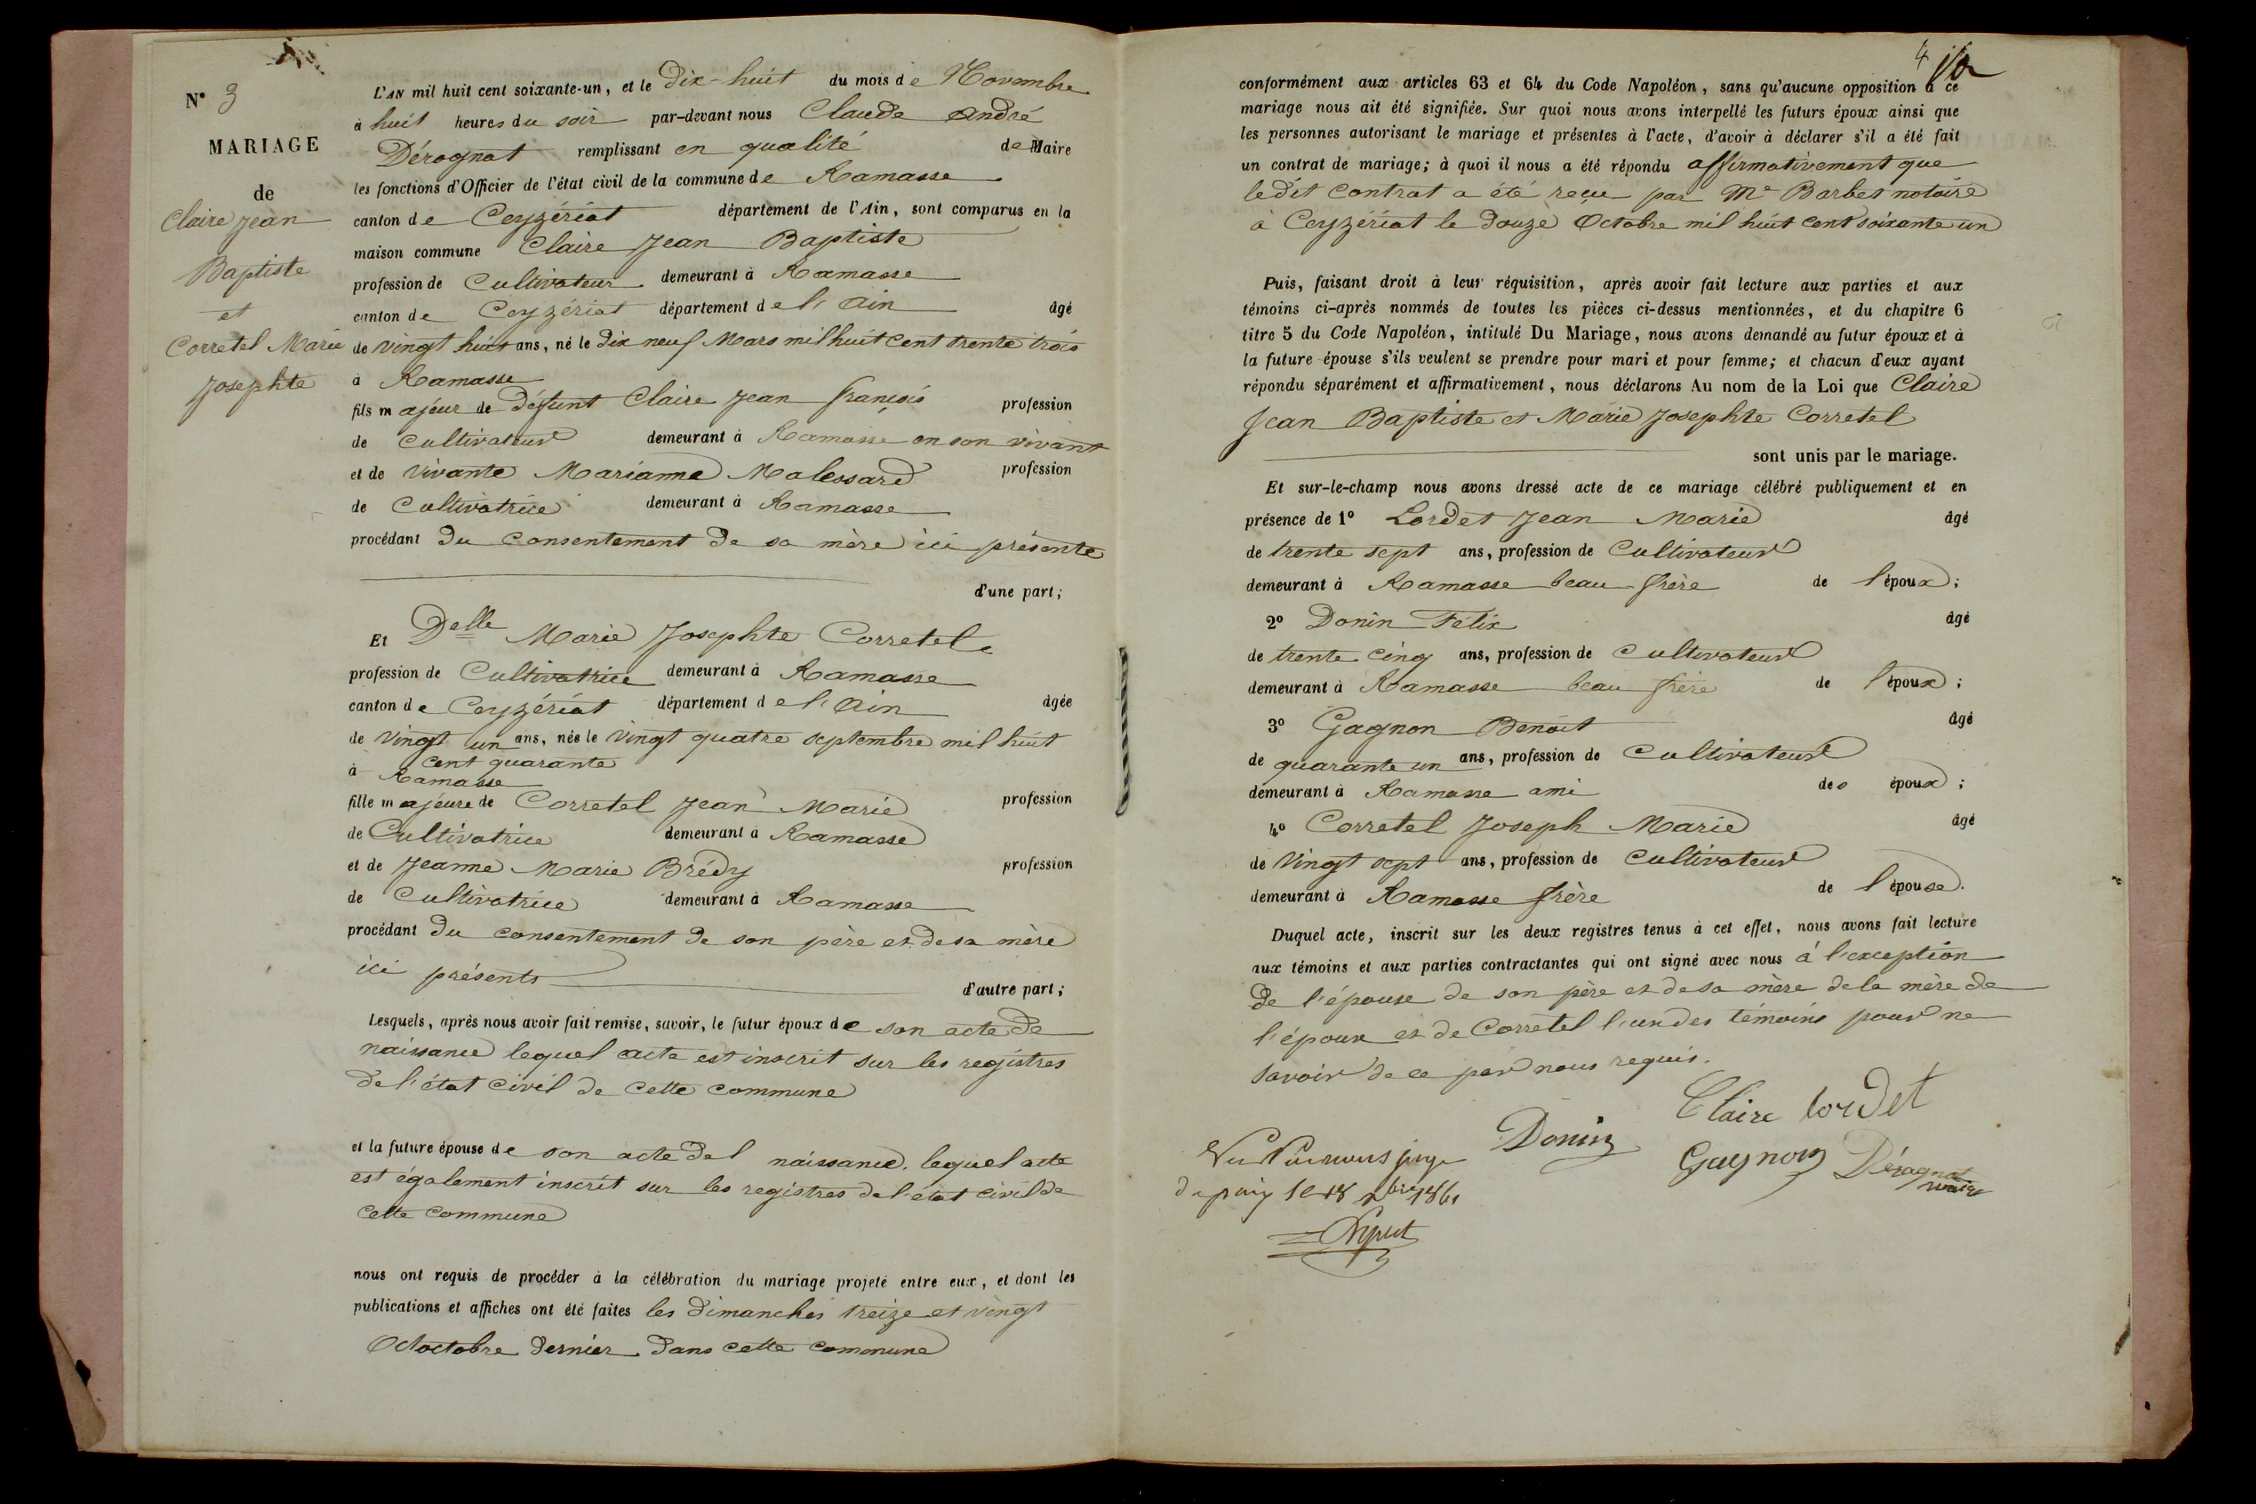 N° 3
MARIAGE
de
Claire Jean
Baptiste
et
Corretel Marie
Josephte
L'AN mil huit cent soixante-un, et le Dix-huit du mois de Novembre
à huit heures du soir par-devant nous Claude André
Dérognat remplissant en qualité de Maire
les fonctions d'Officier de l'état civil de la commune de Ramasse
canton de Ceyzériat département de l'Ain, sont comparus en la
maison commune Claire Jean Baptiste
profession de Cultivateur demeurant à Ramasse
canton de Ceyzériat département de l'Ain âgé
de vingt huit ans, né le dix neuf Mars mil huit cent trente trois
à Ramasse
fils majeur de Défunt Claire Jean françois profession
de cultivateur demeurant à Ramasse en son vivant
et de vivante Marianne Malessard profession
de Cultivatrice demeurant à Ramasse
procédant du consentement de sa mère ici présente
d'une part;
Et Delle Marie Josephte Corretel
profession de Cultivatrice demeurant à Ramasse
canton de Ceyzériat département de l'Ain âgée
de vingt un ans, née le vingt quatre septembre mil huit
cent quarante
à Ramasse
fille majeure de Corretel Jean Marie profession
de Cultivatrice demeurant à Ramasse
et de Jeanne Marie Brédy profession
de Cultivatrice demeurant à Ramasse
procédant du consentement de son père et de sa mère
ici présents
d'autre part;
Lesquels, après nous avoir fait remise, savoir, le futur époux de son acte de
naissance lequel acte est inscrit sur les registres
de l'état civil de cette commune
et la future épouse de son acte de naissance, lequel acte
est également inscrit sur les registres de l'état civil de
cette commune
nous ont requis de procéder à la célébration du mariage projeté entre eux, et dont les
publications et affiches ont été faites les dimanches treize et vingt
Octoctobre dernier dans cette commune
4
conformément aux articles 63 et 64 du Code Napoléon, sans qu'aucune opposition à ce
mariage nous ait été signifiée. Sur quoi nous avons interpellé les futurs époux ainsi que
les personnes autorisant le mariage et présentes à l'acte, d'avoir à déclarer s'il a été fait
un contrat de mariage; à quoi il nous a été répondu affirmativement que
ledit contrat a été reçu par Me Barbet notaire
à Ceyzériat le douze Octobre mil huit cent soixante un
Puis, faisant droit à leur réquisition, après avoir fait lecture aux parties et aux
témoins ci-après nommés de toutes les pièces ci-dessus mentionnées, et du chapitre 6
titre 5 du Code Napoléon, intitulé Du Mariage, nous avons demandé au futur époux et à
la future épouse s'ils veulent se prendre pour mari et pour femme; et chacun d'eux ayant
répondu séparément et affirmativement, nous déclarons Au nom de la Loi que Claire
Jean Baptiste et Marie Josephte Corretel
sont unis par le mariage.
Et sur-le-champ nous avons dressé acte de ce mariage célébré publiquement et en
présence de 1° Lordet Jean Marie âgé
de trente sept ans, profession de Cultivateur
demeurant à Ramasse beau-frère de l'époux;
2° Donin Félix âgé
de trente cinq ans, profession de cultivateur
demeurant à Ramasse beau frère de l'époux;
3° Gagnon Benoit âgé
de quarante un ans, profession de Cultivateur
demeurant à Ramasse ami des époux;
4° Corretel Joseph Marie âgé
de vingt sept ans, profession de cultivateur
demeurant à Ramasse frère de l'épouse.
Duquel acte, inscrit sur les deux registres tenus à cet effet, nous avons fait lecture
aux témoins et aux parties contractantes qui ont signé avec nous à l'exception
de l'épouse de son père et de sa mère de la mère de
l'époux et de Corretel l'un des témoins pour ne
savoir de ce par nous requis.
Claire Lordet
Donin
Gagnon Dérognat
maire
Vu Par nous juge
de paix le 18 xbre 1861